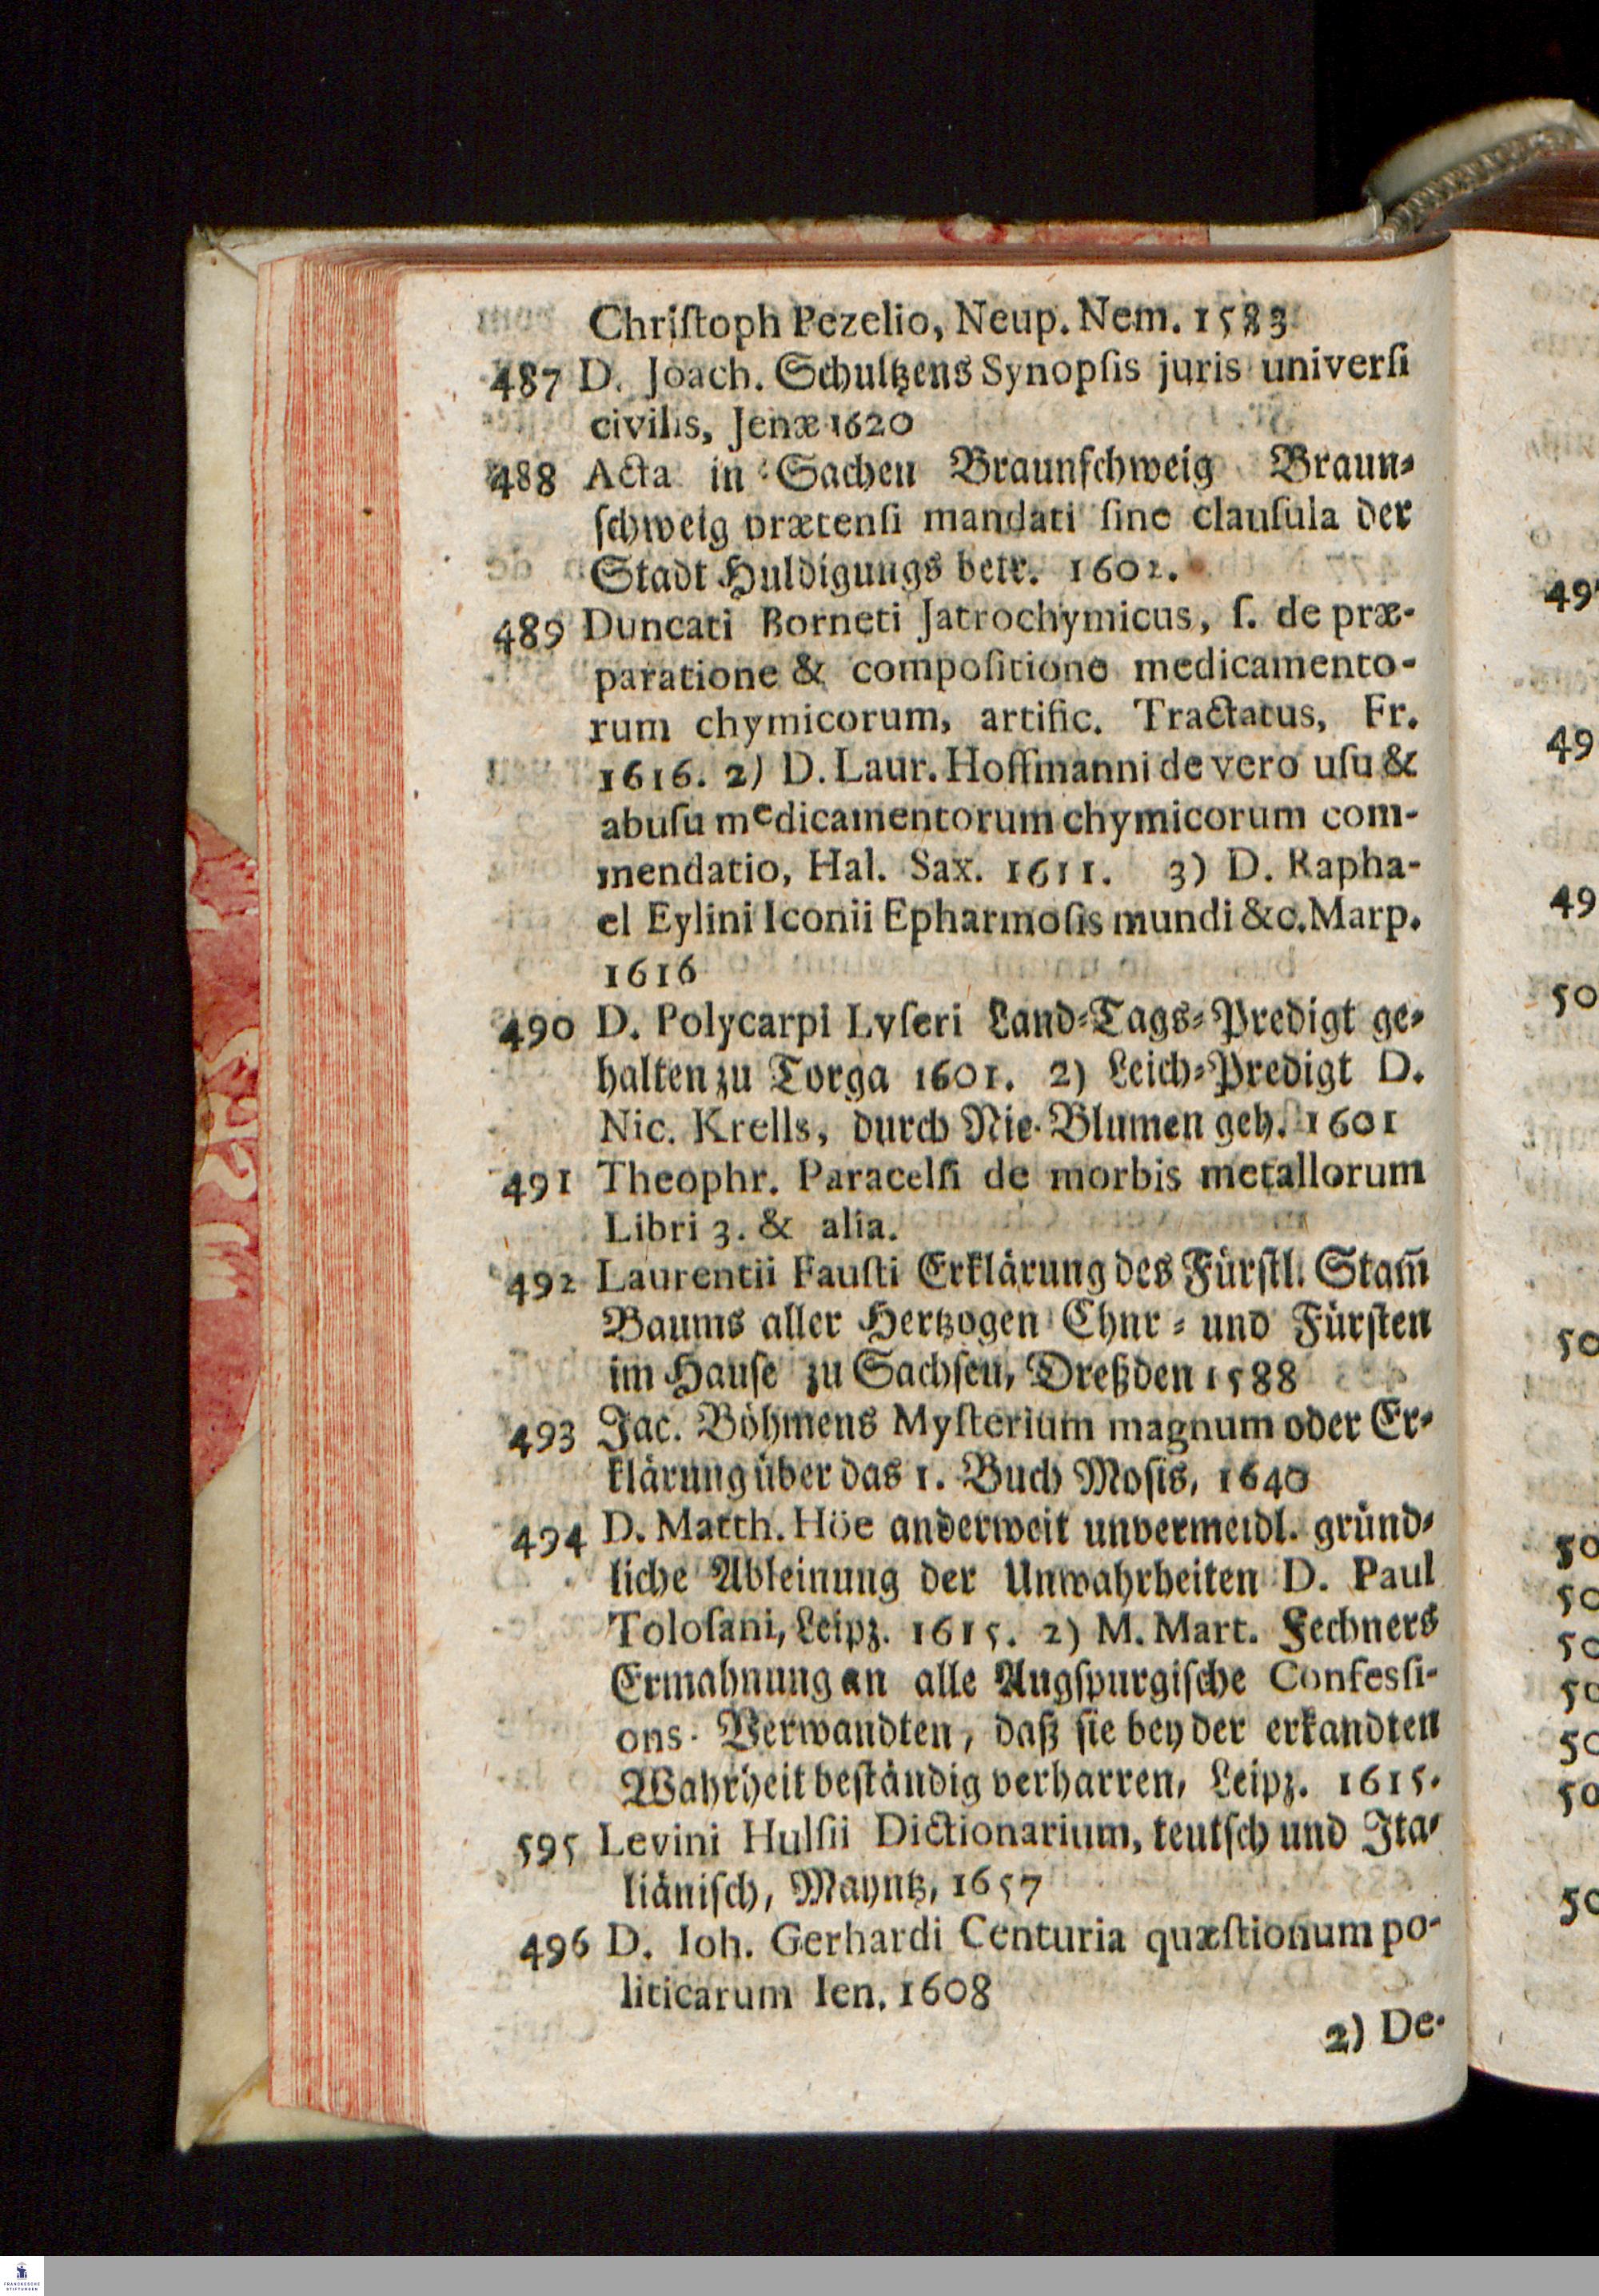 Chriſtoph Pezelio, Neup. Nem. 1583
487 D. Joach. Schultzens Synopſis juris univerſi
civilis, Jenæ 1620
488 Acta in Sachen Braunſchweig Braun⸗
ſchweig prætenſi mandati ſine clauſula der
Stadt Huldigungs betr. 1602.
489 Duncati Borneti Jatrochymicus, ſ. de præ-
paratione & compoſitione medicamento-
rum chymicorum, artific. Tractatus, Fr.
1616. 2) D. Laur. Hoffmanni de vero uſu &
abuſu medicamentorum chymicorum com-
mendatio, Hal. Sax. 1611. 3) D. Rapha-
el Eylini Iconii Epharmoſis mundi &c. Marp.
1616
490 D. Polycarpi Lyſeri Land⸗Tags⸗Predigt ge⸗
halten zu Torga 1601. 2) Leich⸗Predigt D.
Nic. Krells, durch Nic. Blumen geh. 1601
491 Theophr. Paracelſi de morbis metallorum
Libri 3. & alia.
492 Laurentii Fauſti Erklärung des Fürſtl. Stam̃
Baums aller Hertzogen Chur⸗ und Fürſten
im Hauſe zu Sachſen, Dreßden 1588
493 Jac. Böhmens Myſterium magnum oder Er⸗
klärung über das 1. Buch Moſis, 1640
494 D. Matth. Höe anderweit unvermeidl. gründ⸗
liche Ableinung der Unwahrheiten D. Paul
Toloſani, Leipz. 1615. 2) M. Mart. Fechners
Ermahnung an alle Augſpurgiſche Confesſi-
ons- Verwandten, daß ſie bey der erkandten
Wahrheit beſtändig verharren, Leipz. 1615.
595 Levini Hulſii Dictionarium, teutſch und Ita⸗
liäniſch, Mayntz, 1657
496 D. Ioh. Gerhardi Centuria quæſtionum po-
liticarum Ien. 1608
2) De-
49
49
49
50
50
50
50
50
50
50
50
50
FRANCKESCHE
STIFTUNGEN